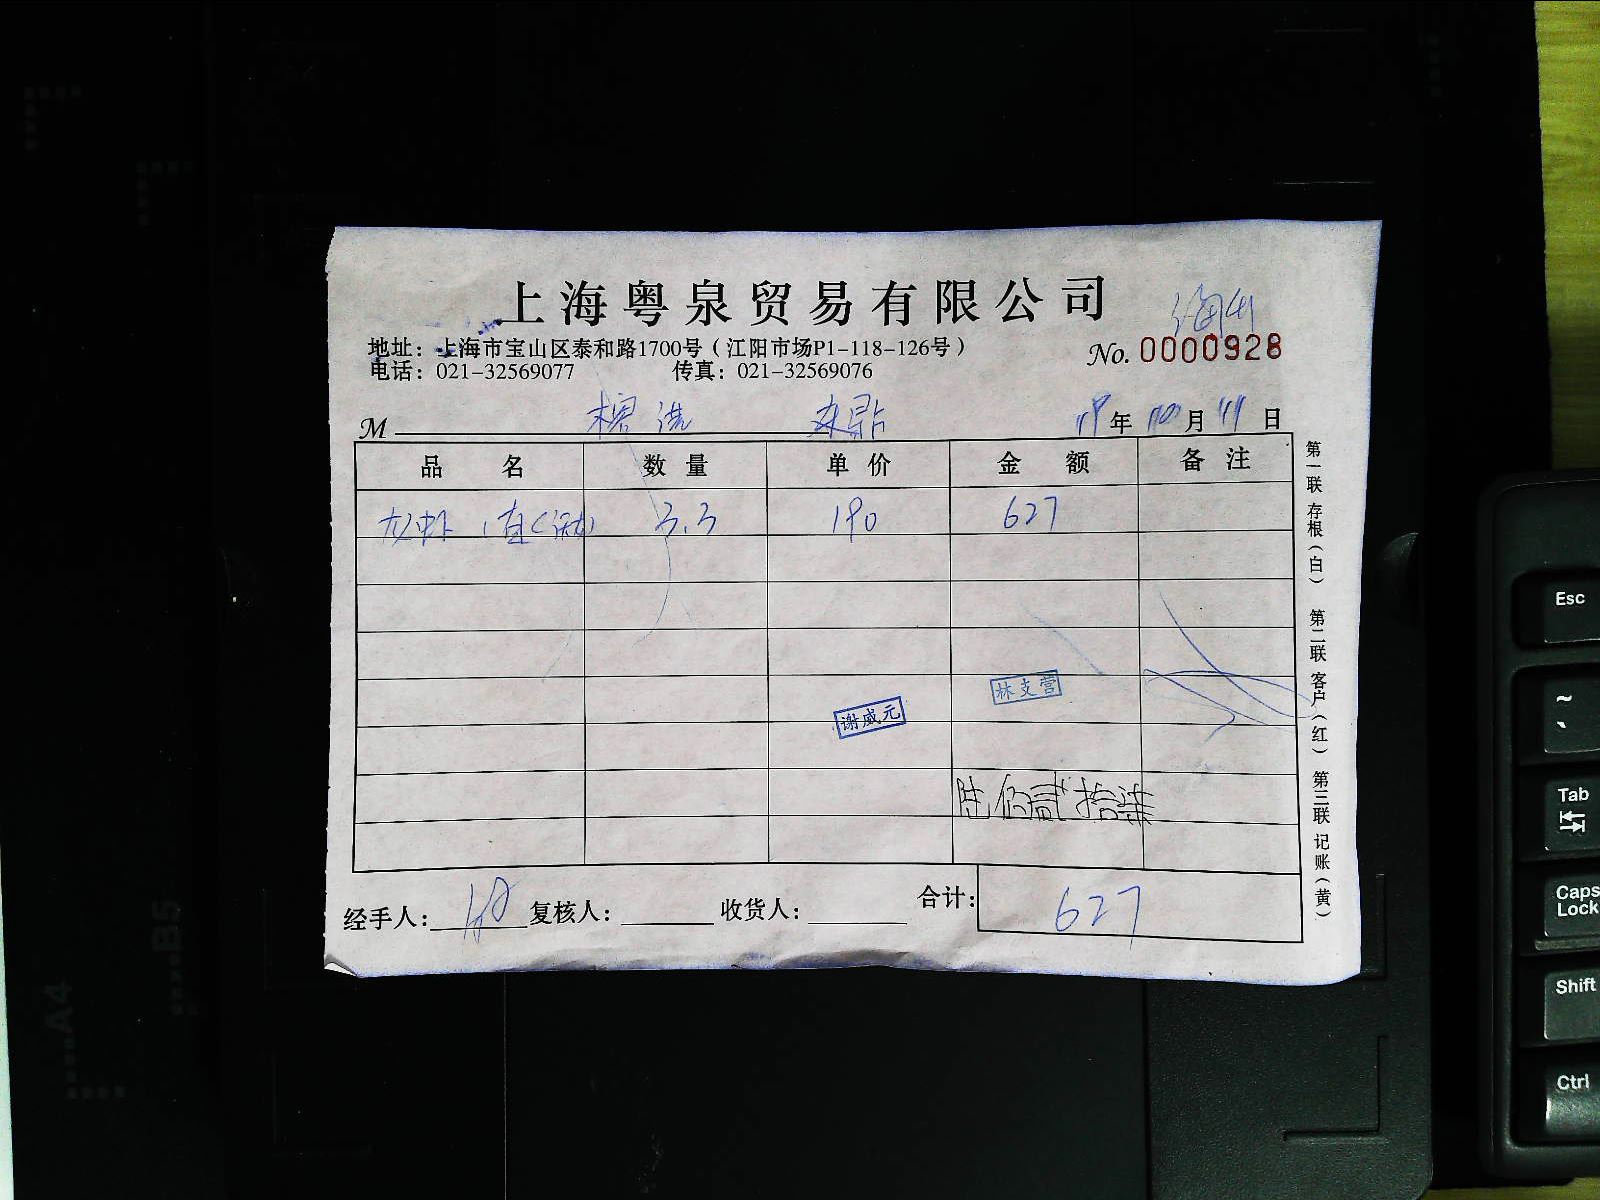 上海粤泉贸易有限公司
地址：上海市宝山区泰和路1700号（江阳市场P1-118-126号）
No. 0000928
电话：021-32569077 传真：021-32569076
M 年 10月 11日
品名 数量 单价 金额 备注
龙虾 3.3 190 627
林支营
谢威元
陆佰贰拾柒
经手人： 复核人： 收货人： 合计： 627
第一联 存根（白） 第二联 客户（红） 第三联 记账（黄）
Esc
~
`
Tab
Caps Lock
Shift
Ctrl
B5
A4